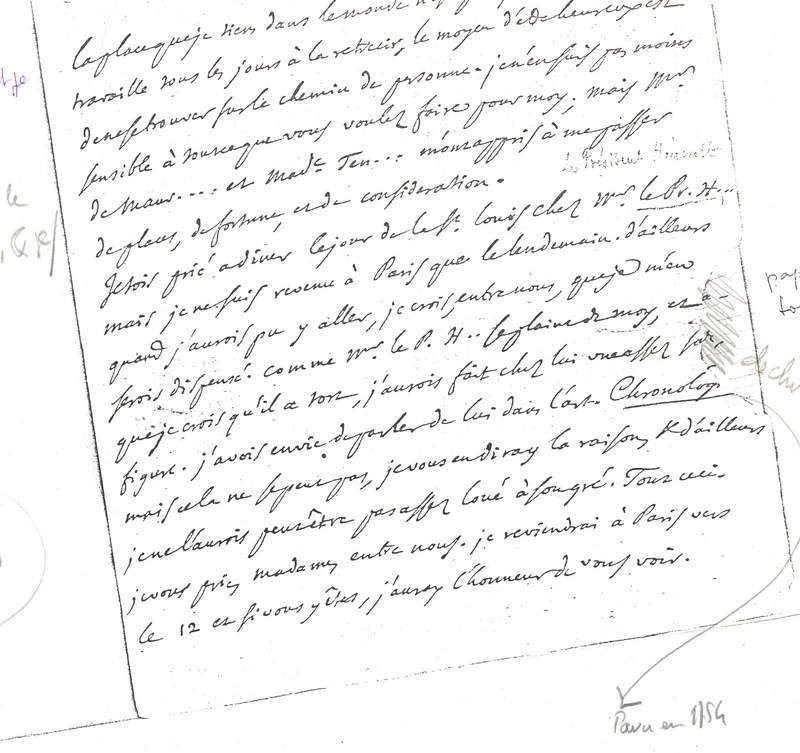 la place que je tiens dans le monde
travaille tous les jours à la retrecir, le moyen d'etre heureux est
de ne se trouver sur le chemin de personne. je n'en suis pas moins
sensible à tout ce que vous voulez faire pour moy; mais Mr.
de Maur.... et Made. Ten... m'ont appris à me passer
le Président Hénault
de places, de fortune, et de consideration.
J'etois prié a diner le jour de la St. Louis chez Mr. le Pr. H...
mais je ne suis revenu à Paris que le lendemain. d'ailleurs
quand j'aurois pu y aller, je crois, entre nous, que je m'en
serois dispensé. comme Mr. le P. H.. se plaint de moy, et
que je crois qu'il a tort, j'aurois fait chez lui une assez sotte
figure. j'avois envie de parler de lui dans l'art. Chronologie
mais cela ne se peut pas, je vous en diray la raison, & d'ailleurs
je ne l'aurois peut être pas assez loué à son gré. Tout ceci
je vous prie, madame, entre nous. je reviendrai à Paris vers
le 12 et si vous y êtes, j'auray l'honneur de vous voir.
le
Paru en 1754